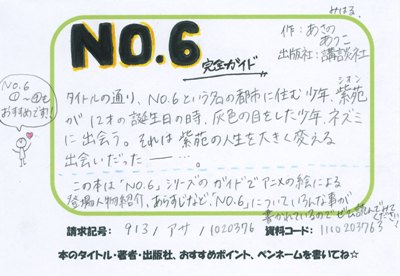 みはる。
NO.6
完全ガイド
作：あさの
あつこ
出版社：講談社
NO.6
おすすめです!!
タイトルの通り、NO.6という名の都市に住む少年、紫苑
シオン
が12才の誕生日の時、灰色の目をした少年、ネズミ
に出会う。それは紫苑の人生を大きく変える
出会いだった――。
この本は「NO.6」シリーズのガイドでアニメの絵による
登場人物紹介、あらすじなど「NO.6」についていろんな事が
書かれているのでぜひ読んでみて
ください!
請求記号： 913/アサ/1020376 資料コード： 1100203763
本のタイトル・著者・出版社、おすすめポイント、ペンネームを書いてね☆